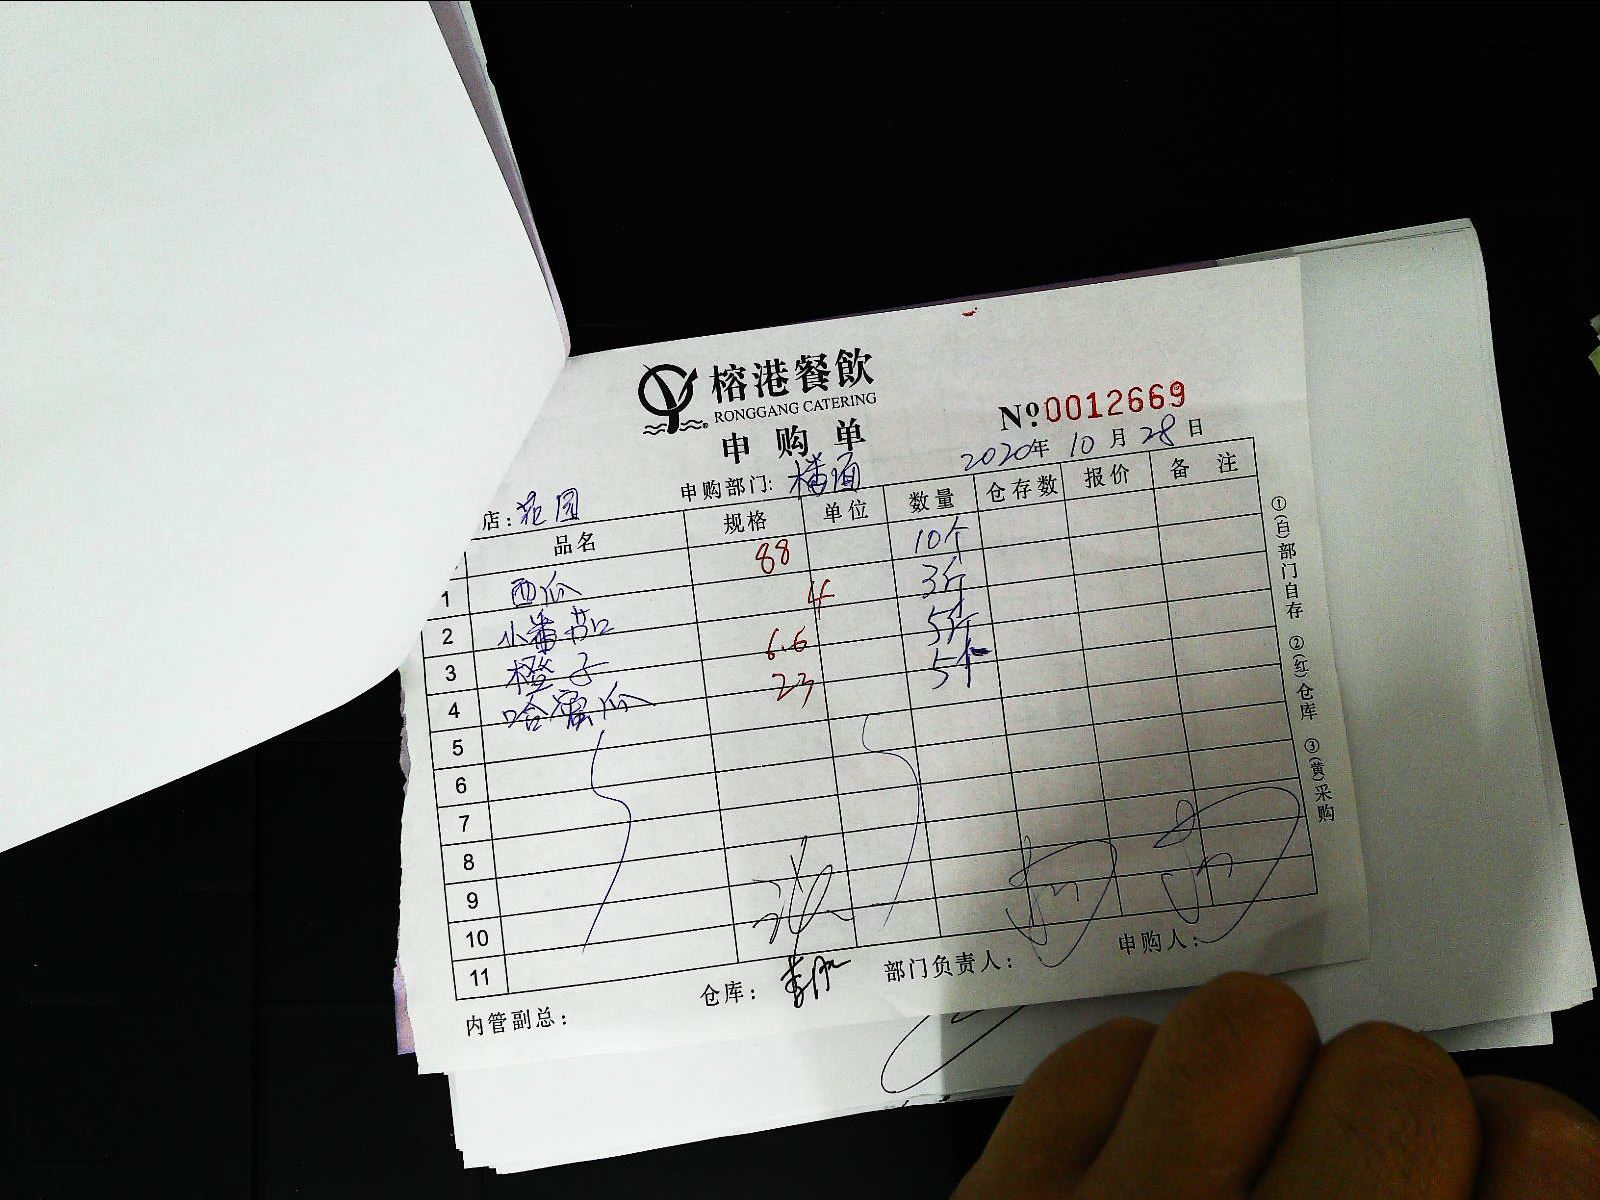 榕港餐飲
RONGGANG CATERING
申购单
№ 0012669
店: 苑园 申购部门: 楼面 2020年 10月 28日
品名 规格 单位 数量 仓存数 报价 备注
1 西瓜 88 10个
2 小番茄 4 3斤
3 橙子 6.6 5斤
4 哈密瓜 23 5个
5
6
7
8
9
10
11
内管副总: 仓库: 部门负责人: 申购人:
①(白)部门自存 ②(红)仓库 ③(黄)采购